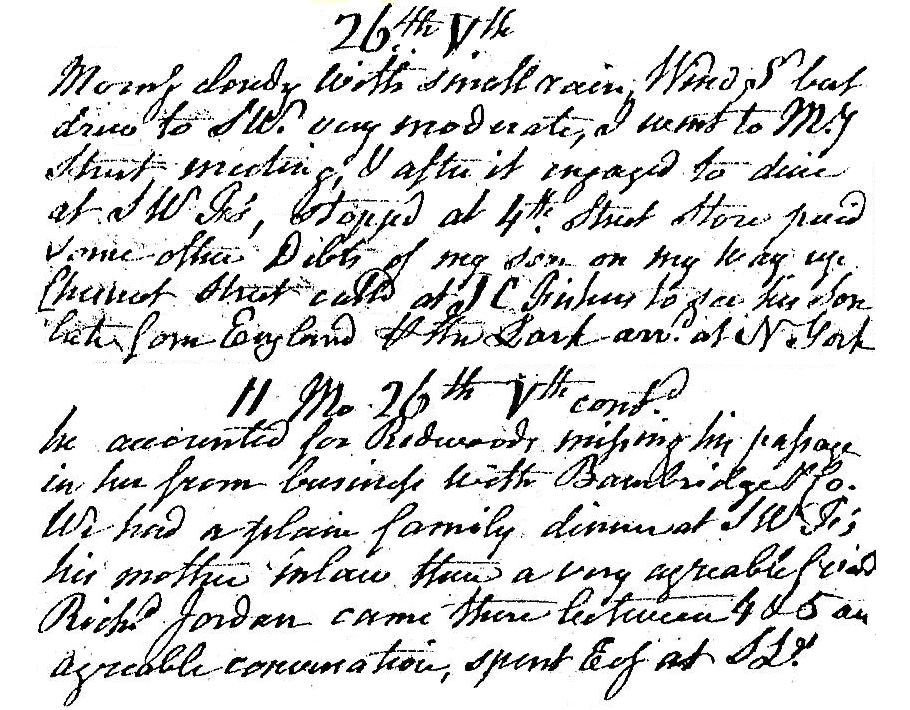 26th Vth
Morng cloudy with small rain, Wind S but
drew to SW. very moderate, I went to M.y
Street meeting, & after it engaged to dine
at S W Fs, stopped at 4th. Street Store paid
some other Debts of my son on my way up
Chesnut Street calld at J C Fishers to see his Son
late from England the Lark arrd. at N York
11 Mo 26th Vth contd.
he accounted for Redwoods missing his passage
in her from business with Bainbridge & Co.
We had a plain family dinner at S W Fs
his mother inlaw there a very agreable friend
Richd Jordan came there between 4 & 5 an
agreable conversation, spent Eg at